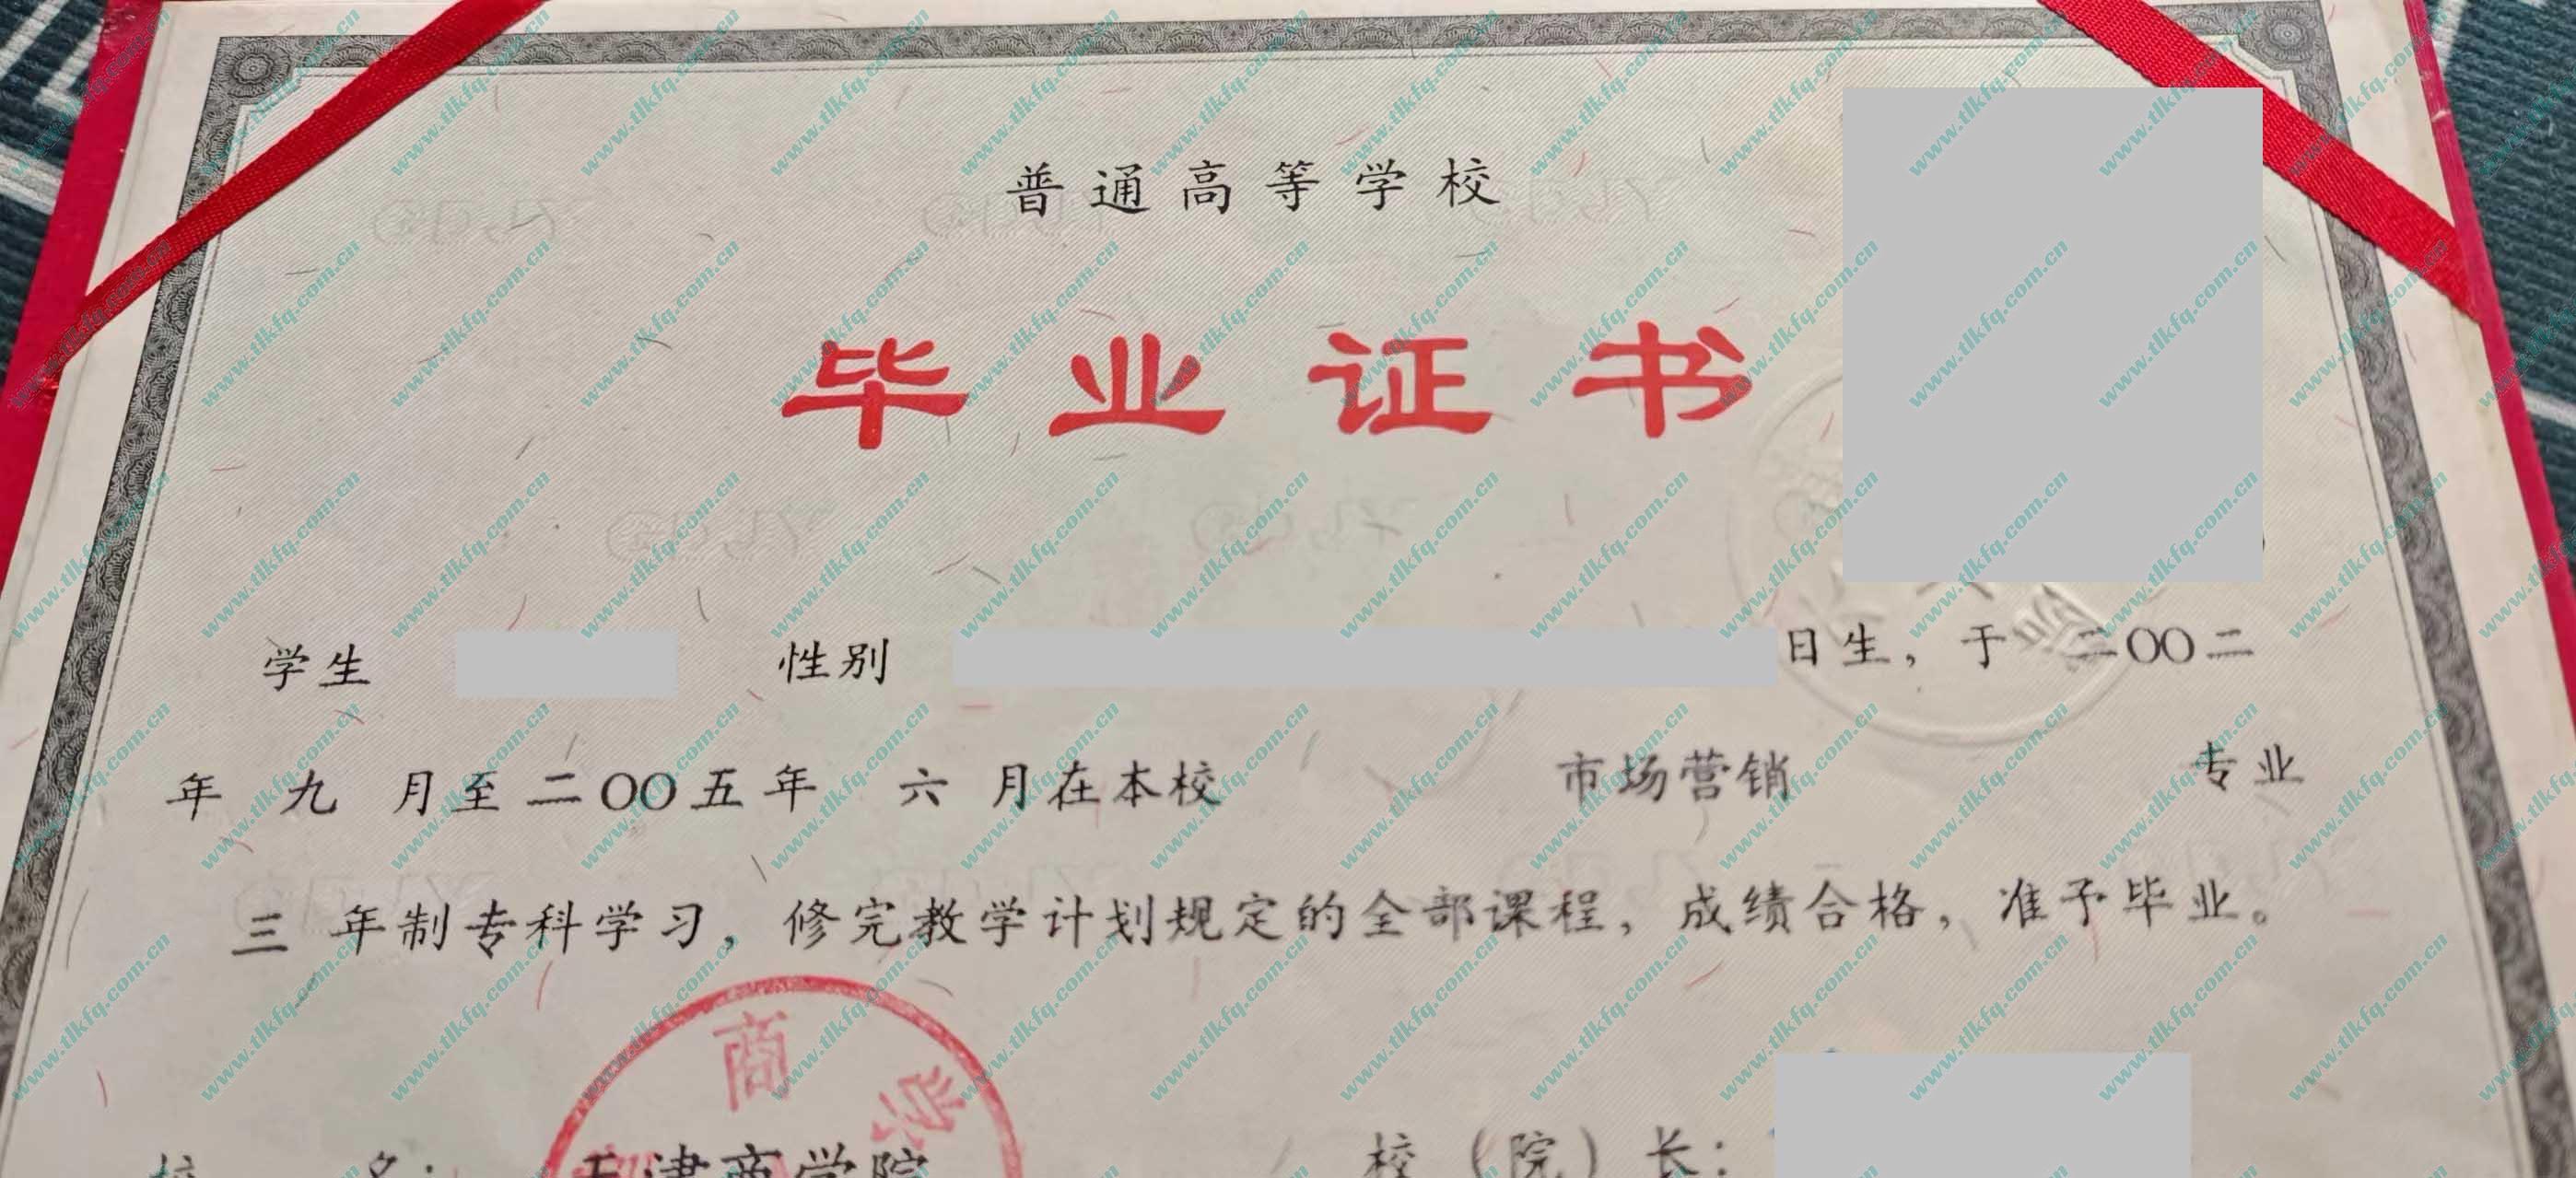 普通高等学校
毕业证书
学生 性别 日生，于 二〇〇二
年 九 月至 二〇〇五 年 六 月在本校 市场营销 专业
三 年制专科学习，修完教学计划规定的全部课程，成绩合格，准予毕业。
商学
校 名：天津商学院 校（院）长：
www.tlkfq.com.cn